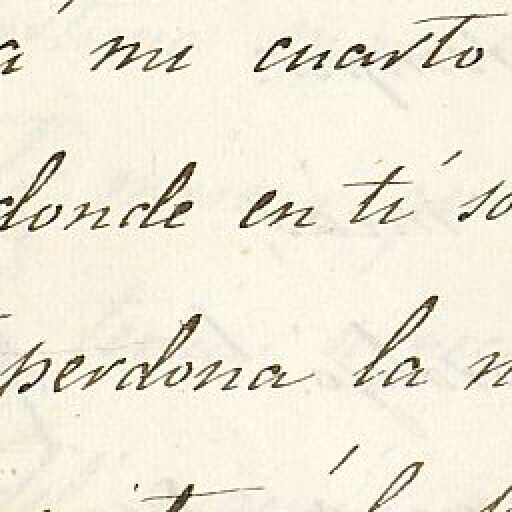 a mi cuarto
donde en tí so
perdona la n